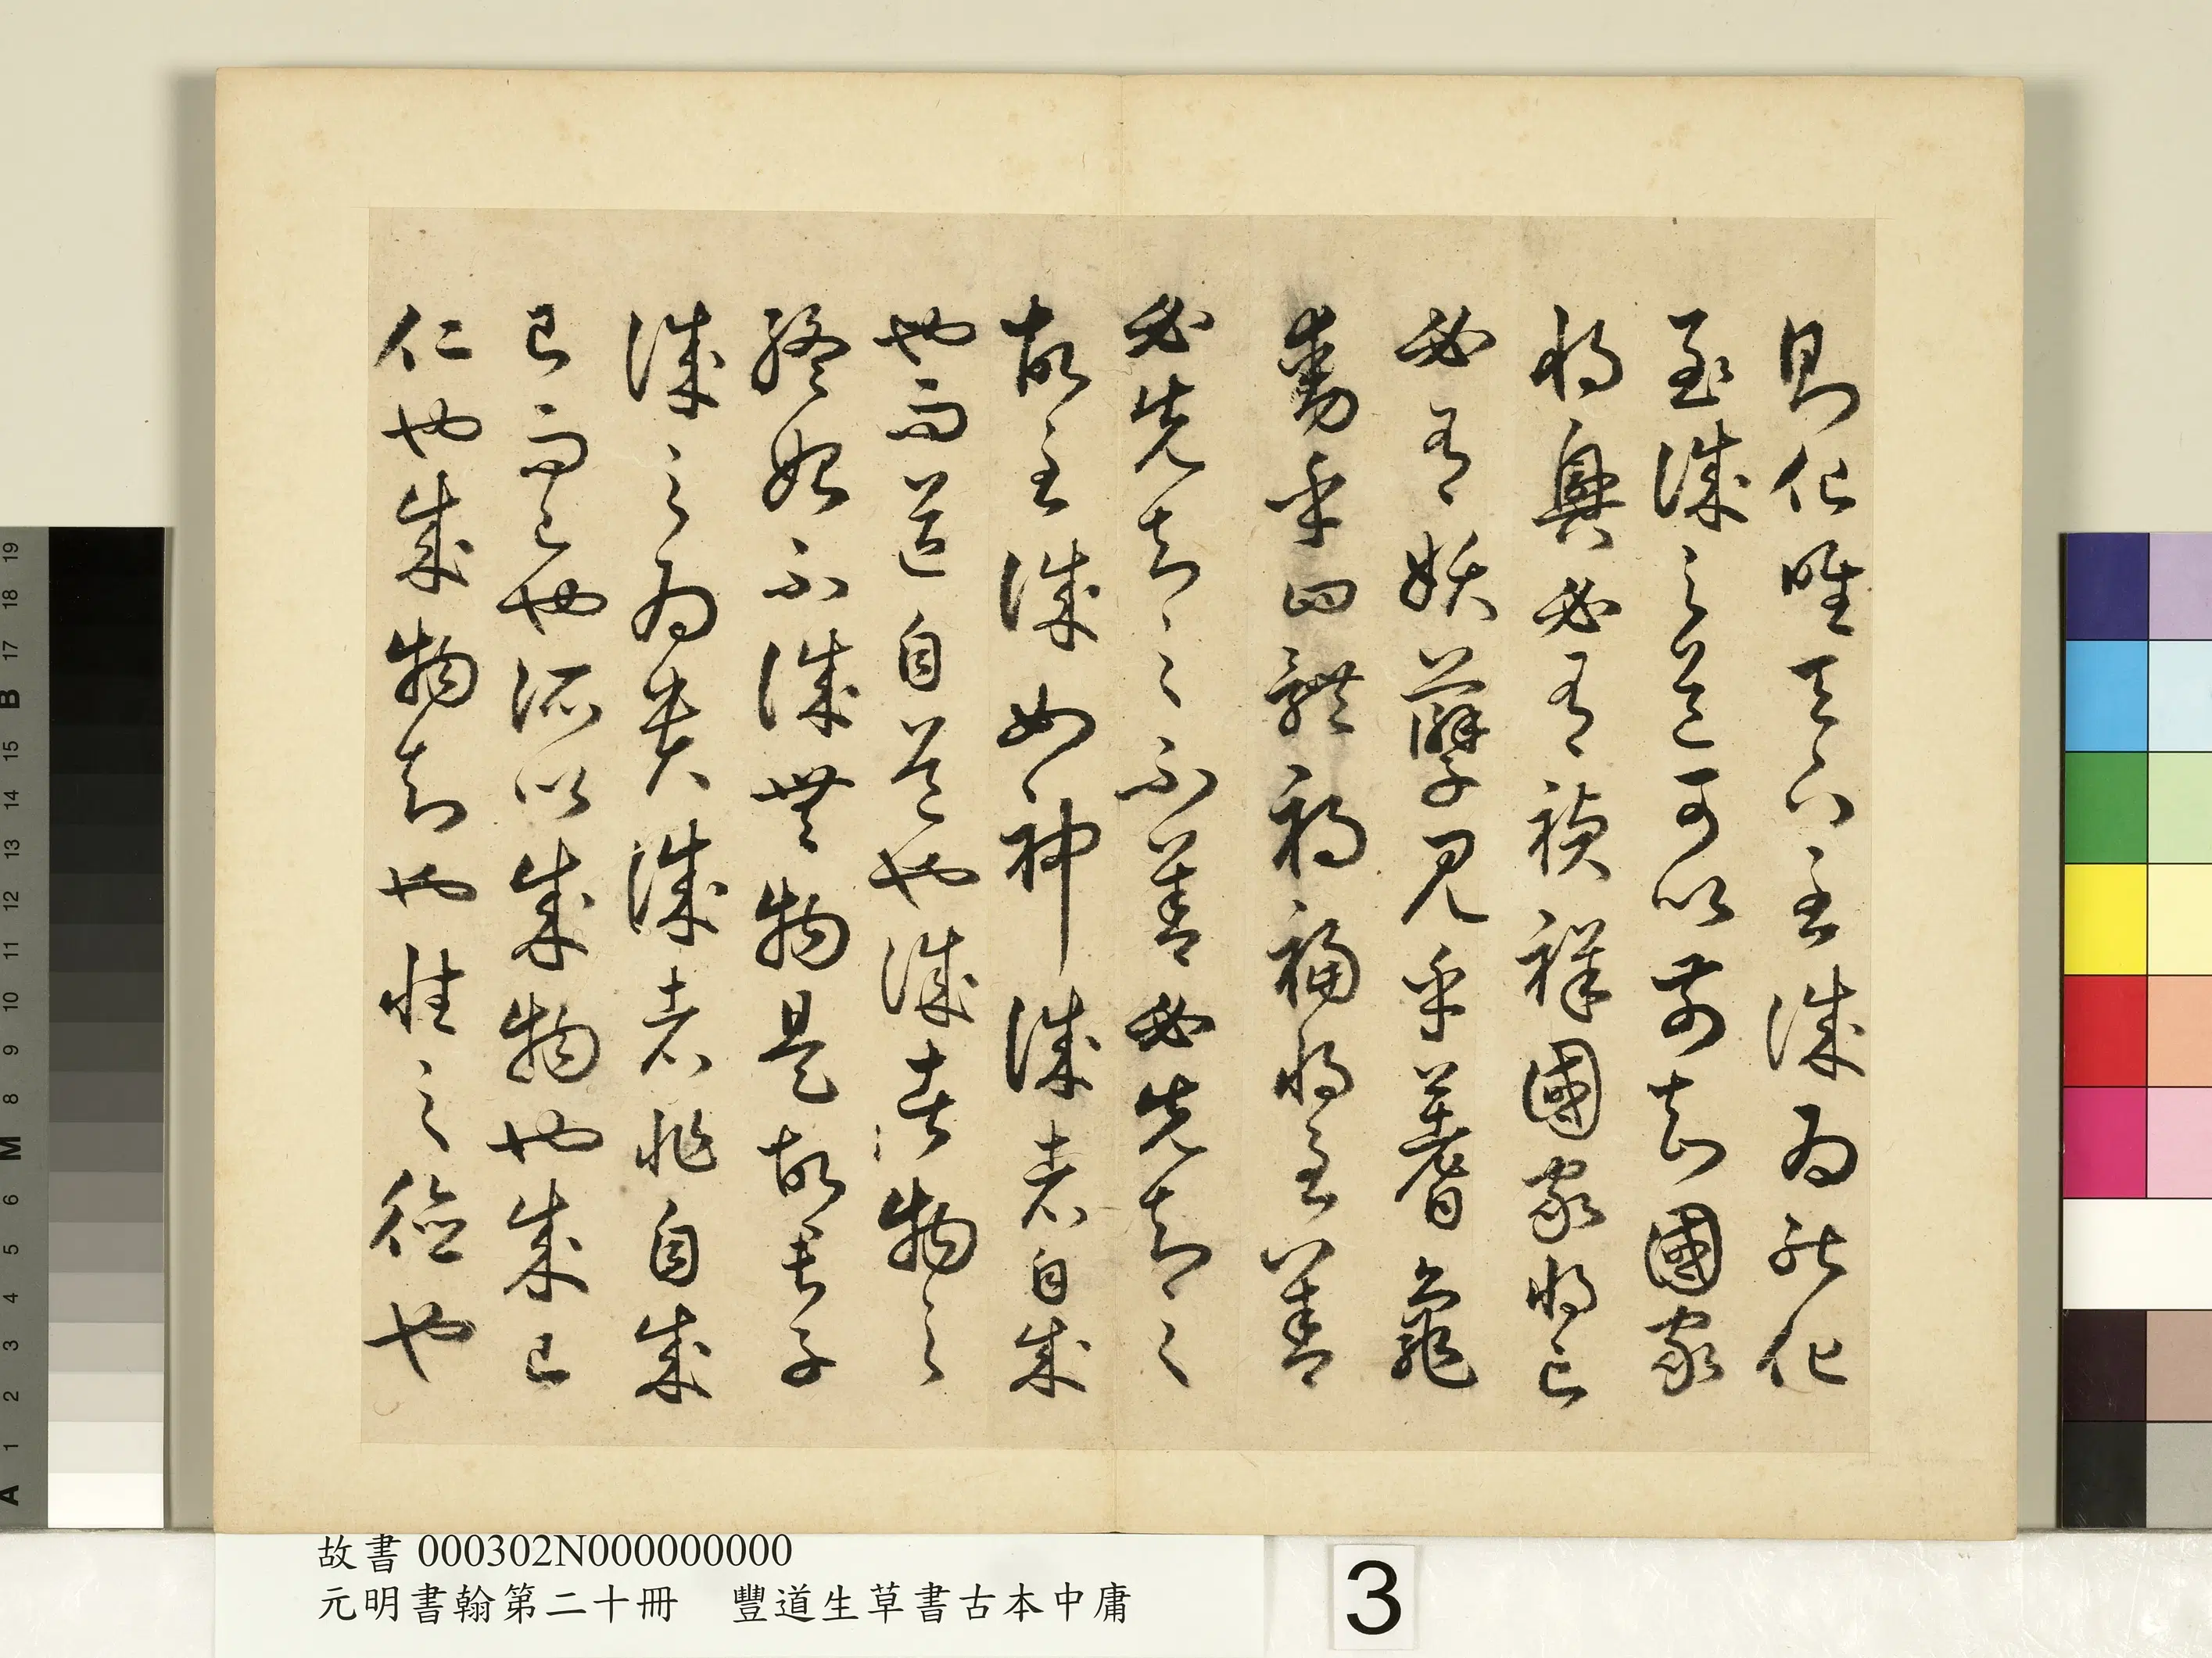 則化唯天下至誠為能化
至誠之道可以前知國家
將興必有禎祥國家將亡
必有妖孽見乎蓍龜
動乎四體禍福將至善
必先知之不善必先知之
故至誠如神誠者自成
也而道自道也誠者物之
終始不誠無物是故君子
誠之為貴誠者非自成
己而已也所以成物也成己
仁也成物知也性之德也
故書 000302N000000000
元明書翰第二十冊 豐道生草書古本中庸
3
A 1 2 3 4 5 6 M 8 9 10 11 12 13 14 15 B 17 18 19